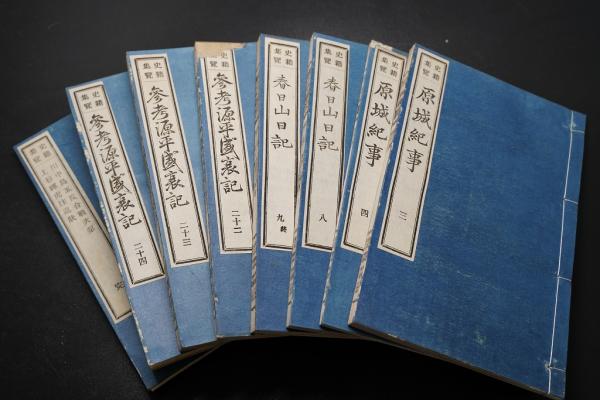 史籍
集覽
原城紀事
三
史籍
集覽
原城紀事
四
史籍
集覽
春日山日記
八
史籍
集覽
春日山日記
九終
史籍
集覽
參考源平盛衰記
二十二
史籍
集覽
參考源平盛衰記
二十三
史籍
集覽
參考源平盛衰記
二十四
史籍
集覽
川中島五 合戰次第
上杉輝虎注進狀
完